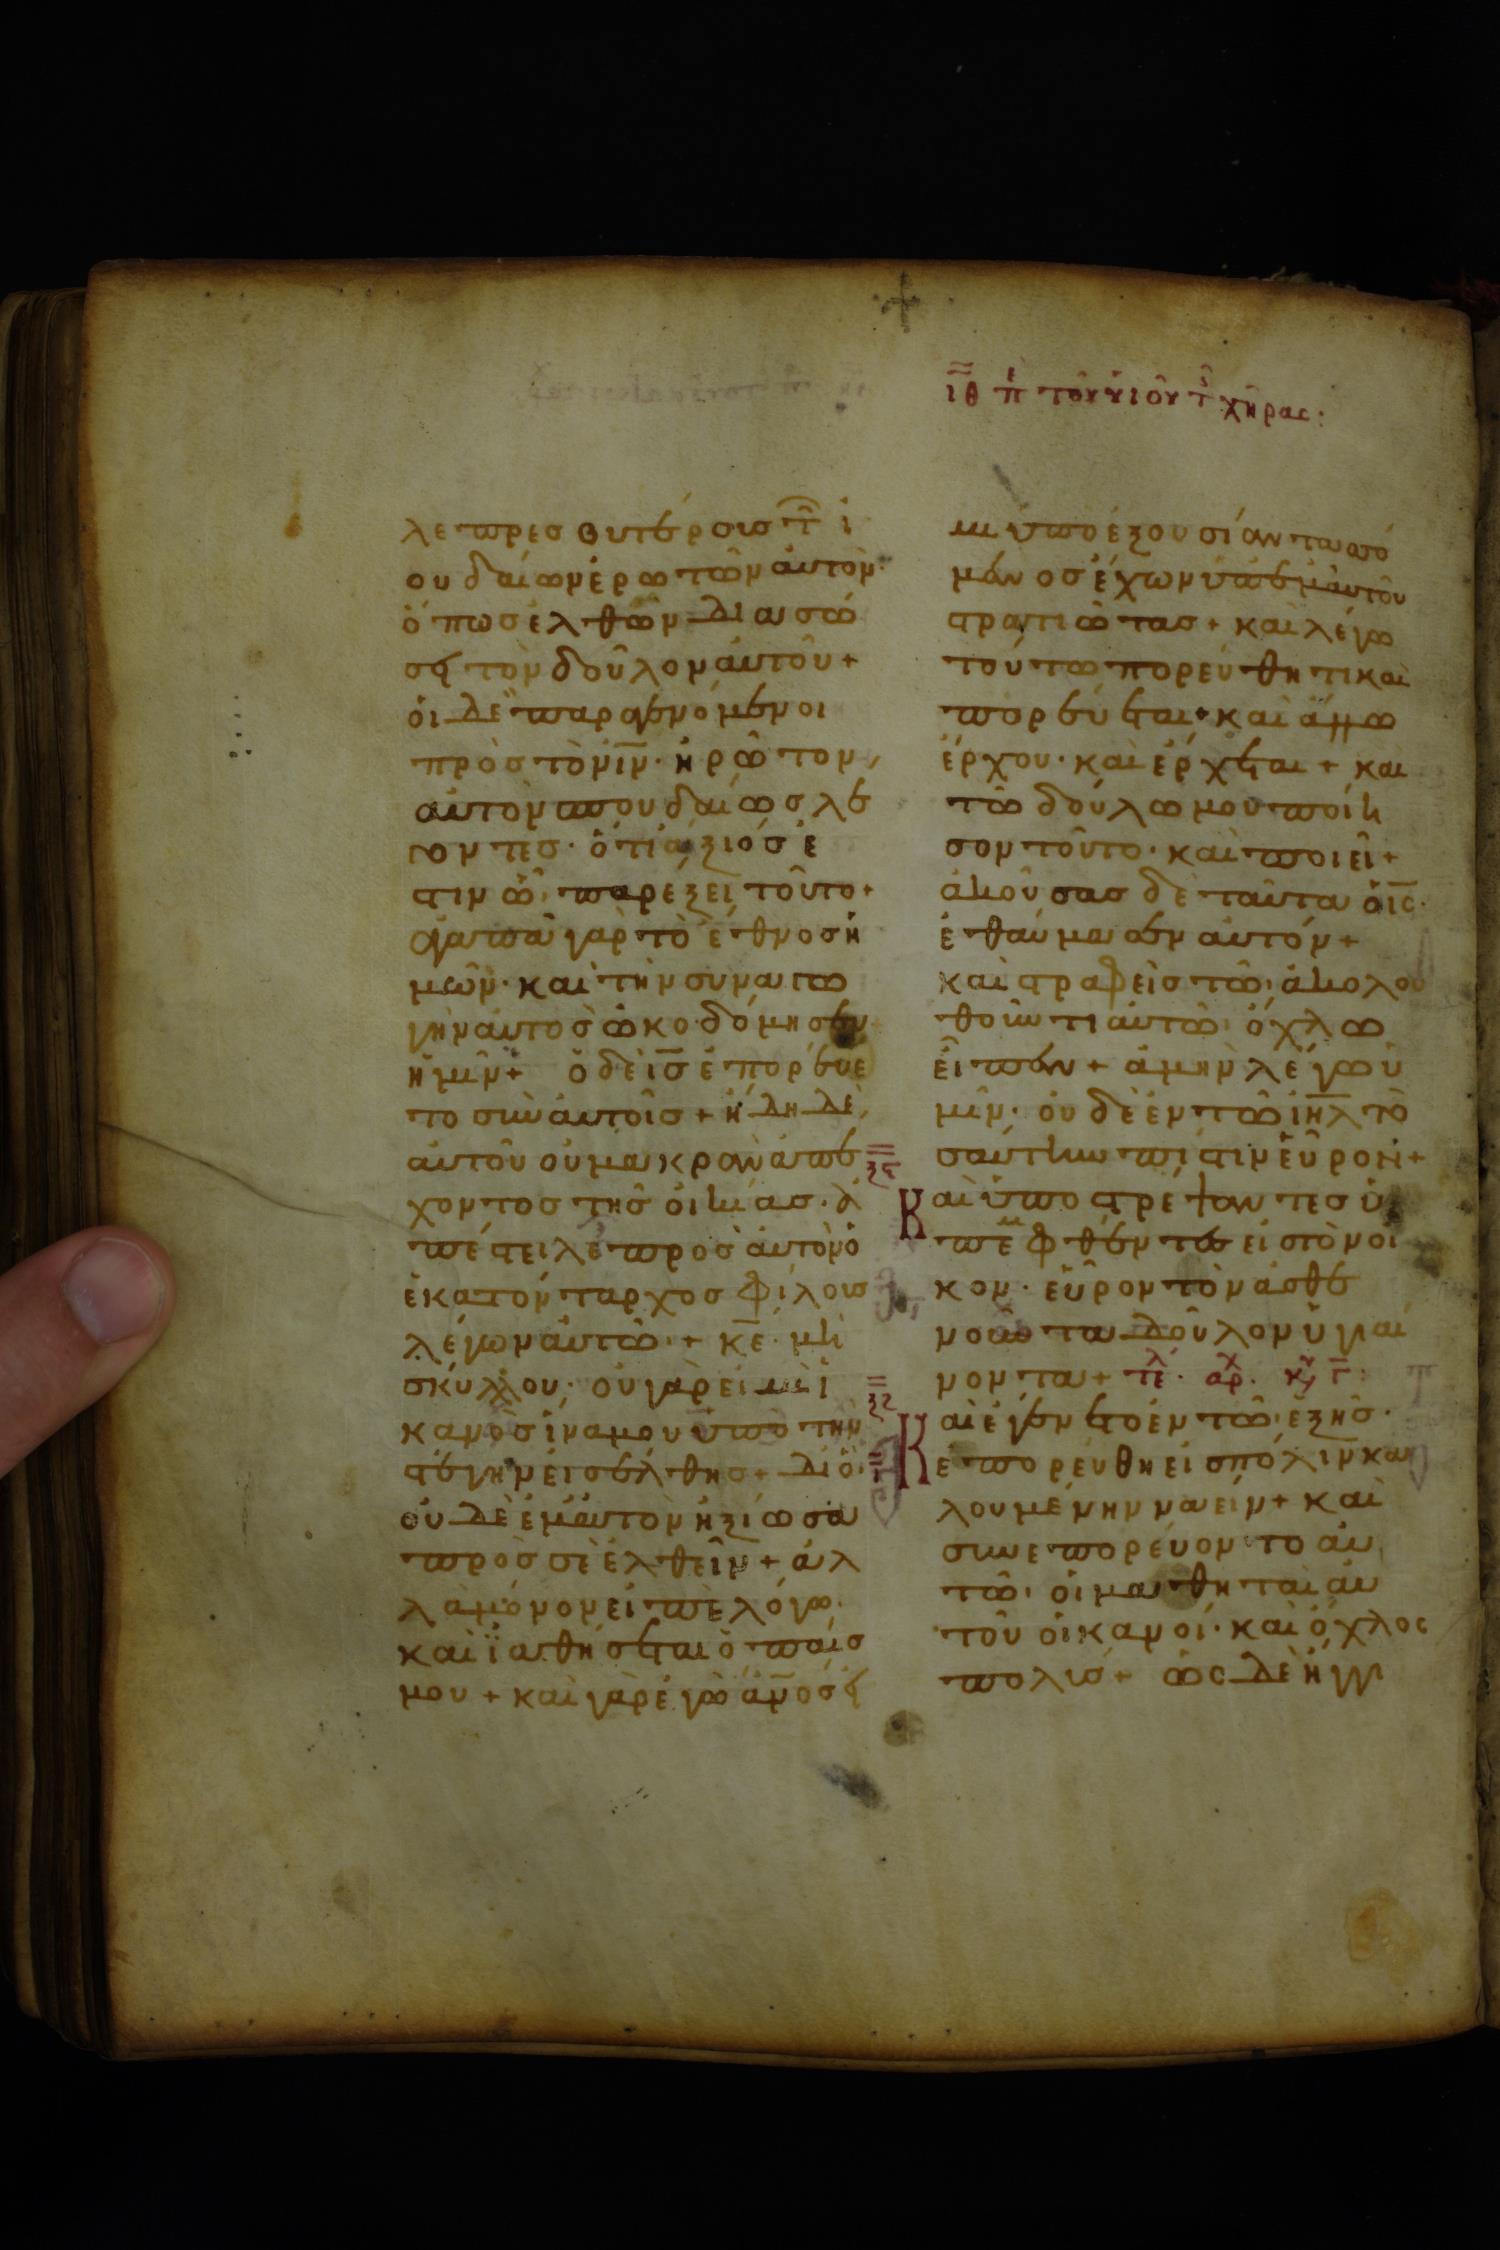 ιθ π τοῦ υἱοῦ τ χήρας:
λε πρεσβυτέρουσ τ ἰ
ουδαίων ἐρωτῶν αὐτὸν·
ὅπωσ ἐλθὼν διασώ
ση τὸν δοῦλον αὐτοῦ +
οἱ δὲ παραγενόμενοι
πρὸσ τὸν ιν· ἠρώτον
αὐτὸν σπουδαίωσ λέ
γοντεσ· ὅτι ἄξιόσ ἐ
στιν ὧ παρέξει τοῦτο +
ἀγαπᾶ γὰρ τὸ ἔθνοσ ἡ
μῶν· καὶ τὴν συναγω
γὴν αὐτὸσ ὠκοδόμησεν
ἡμῖν + ὁ δὲ ισ ἐπορεύε
το σὺν αὐτοῖσ + ἤδη δὲ
αὐτοῦ οὐ μακρὰν ἀπέ
χοντοσ τῆσ οἰκίασ· ἀ
πέστειλε πρὸσ αὐτὸν ὁ
ἑκατόνταρχοσ φίλουσ
λέγων αὐτῶ + κε μὴ
σκύλλου· οὐ γὰρ εἰμὶ ἱ
κανὸσ ἵνα μου ὑπὸ τὴν
στέγην εἰσέλθησ + διὸ
οὐδὲ ἐμαυτὸν ἠξίωσα
πρὸσ σὲ ἐλθεῖν + ἀλ
λὰ μόνον εἰπὲ λόγω
καὶ ἰαθήσεται ὁ παῖσ
μου + καὶ γὰρ ἐγὼ ἄνοσ εἰ
μι ὑπὸ ἐξουσίαν τασσό
μενοσ ἔχων ὑπ ἐμαυτὸν
στρατιώτασ + καὶ λέγω
τούτω πορεύθητι καὶ
πορεύεται + καὶ ἄλλω
ἔρχου· καὶ ἔρχεται + καὶ
τῶ δούλω μου ποίη
σον τοῦτο· καὶ ποιεῖ +
ἀκούσασ δὲ ταῦτα ὁ ις·
ἐθαύμασεν αὐτόν +
καὶ στραφεὶσ τῶ ἀκολου
θοῦντι αὐτῶ ὄχλω
εἶπεν + ἀμὴν λέγω ὑ
μῖν· οὐδὲ ἐν τῶ ιηλ το
σαύτην πίστιν εὗρον +
ξϛ
Καὶ ὑποστρέψαντεσ ὁι
πεμφθέντεσ εἰσ τὸν οἶ
κον· εὗρον τὸν ἀσθε
νοῦντα δοῦλον ὑγιαί
νοντα + τελ· αρχ· κυ γ:
ξζ
Καὶ ἐγένετο ἐν τῶ ἑξῆσ·
ἐπορεύθη εἰσ πόλιν κα
λουμένην ναείν + καὶ
συνεπορεύοντο αὐ
τῶ οἱ μαθηταὶ αὐ
τοῦ οἱκανοί· καὶ ὄχλος
πολύσ + ὡς δὲ ἤγγι